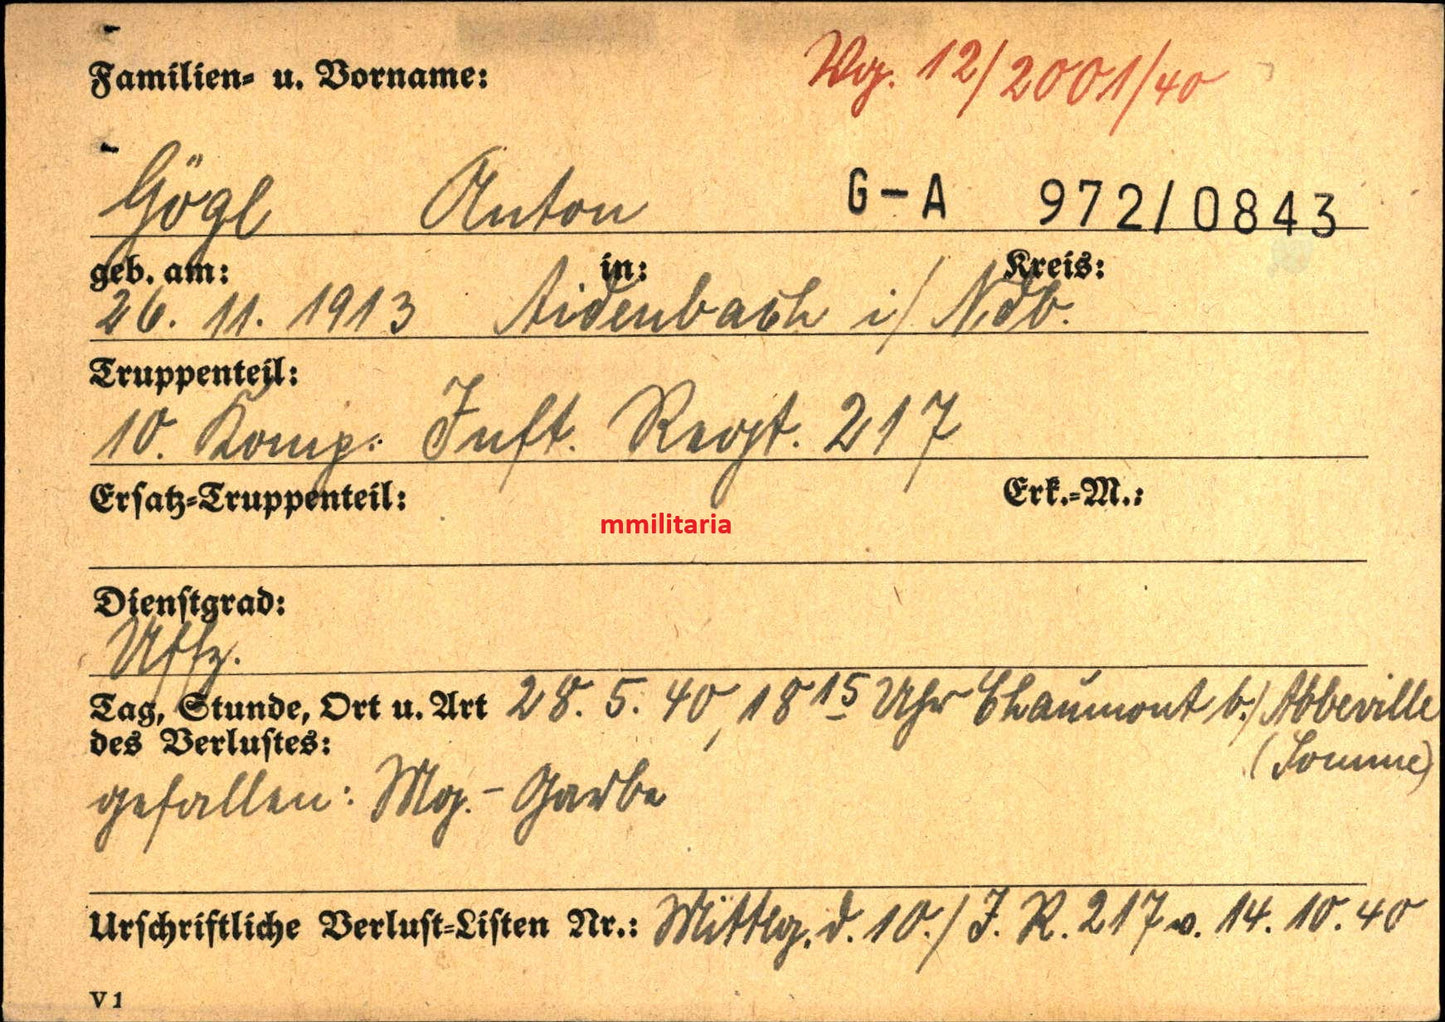 Familien- u. Vorname:
Wg. 12/2001/40
Gögl Anton G-A 972/0843
geb. am: in: Kreis:
26. 11. 1913 Aidenbach i/ Ndb.
Truppenteil:
10. Komp. Inft. Regt. 217
Ersatz-Truppenteil: Erk.-M.:
mmilitaria
Dienstgrad:
Uffz.
Tag, Stunde, Ort u. Art 28. 5. 40, 18 15 Uhr Chaumont b./ Abbeville
des Verlustes: (Somme)
gefallen: Mg.- Garbe
Urschriftliche Verlust-Listen Nr.: Mittlg. d. 10./ J. R. 217 v. 14. 10. 40
V 1